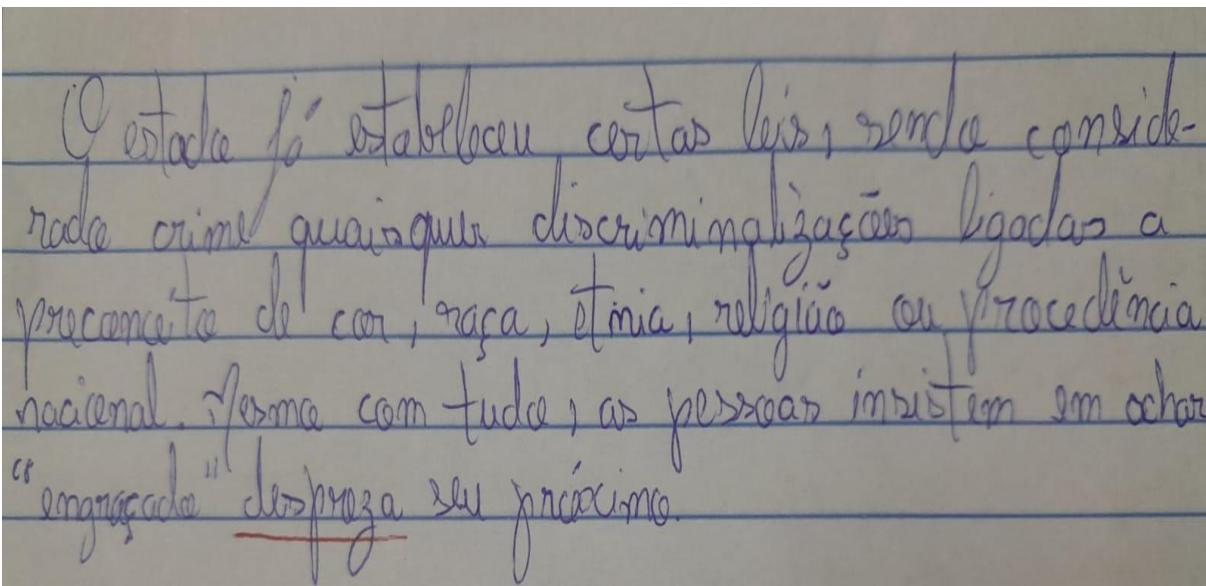 O estado já estabeleceu certas leis, sendo conside-
rado crime quaisquer discriminalizações ligadas a
preconceito de cor, raça, etnia, religião ou procedência
nacional. Mesmo com tudo, as pessoas insistem em achar
"engraçado" despreza seu próximo.